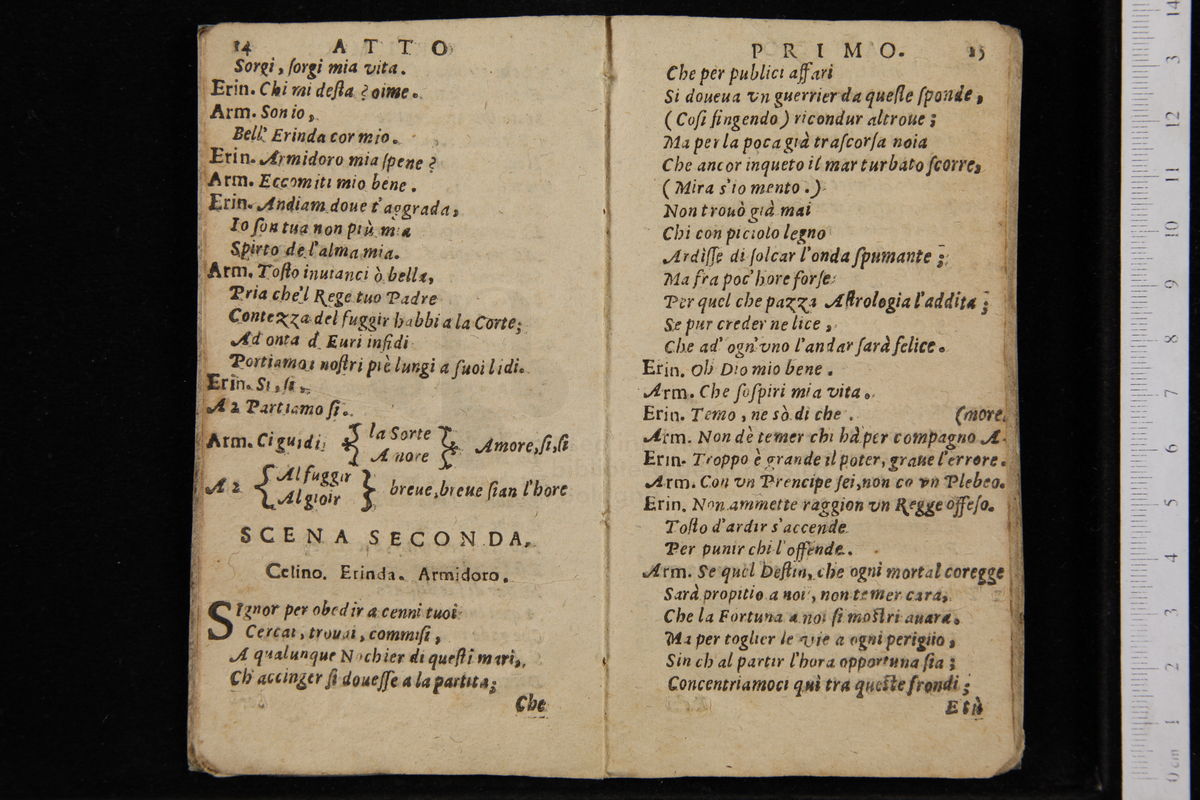 14 ATTO
Sorgi, ſorgi mia vita.
Erin. Chi mi deſta ? oime.
Arm. Son io,
Bell' Erinda cor mio.
Erin. Armidoro mia ſpene ?
Arm. Eccomiti mio bene.
Erin. Andiam doue t'aggrada,
Io ſon tua non più mia
Spirto de l'alma mia.
Arm. Toſto inuianci ò bella,
Pria che'l Rege tuo Padre
Contezza del fuggir habbi a la Corte;
Ad onta d Euri infidi
Portiamoi noſtri piè lungi a ſuoi lidi.
Erin. Si, ſi,
A 2 Partiamo ſi.
Arm. Ci guidi { la Sorte
Amore } Amore, ſi, ſi
A 2 { Al fuggir
Al gioir } breue, breue ſian l'hore
SCENA SECONDA.
Celino. Erinda. Armidoro.
SIgnor per obedir a cenni tuoi
Cercai, trouai, commiſi,
A qualunque Nochier di queſti mari,
Ch' accinger ſi doueſſe a la partita;
Che
PRIMO. 15
Che per publici affari
Si doueua vn guerrier da queſte ſponde,
(Coſi fingendo) ricondur altroue;
Ma per la poca già traſcorſa noia
Che ancor inqueto il mar turbato ſcorre,
(Mira s'io mento.)
Non trouò già mai
Chi con piciolo legno
Ardiſſe di ſolcar l'onda ſpumante ;
Ma fra poc' hore forſe
Per quel che pazza Aſtrologia l'addita ;
Se pur creder ne lice,
Che ad' ogn'vno l'andar ſarà felice.
Erin. Oh Dio mio bene.
Arm. Che ſoſpiri mia vita.
Erin. Temo, ne sò di che. (more.
Arm. Non dè temer chi hà per compagno A-
Erin. Troppo è grande il poter, graue l'errore.
Arm. Con vn Prencipe ſei, non co vn Plebeo.
Erin. Non ammette raggion vn Regge offeſo.
Toſto d'ardir s'accende
Per punir chi l'offende.
Arm. Se quel Deſtin, che ogni mortal coregge
Sarà propitio a noi, non temer cara,
Che la Fortuna a noi ſi moſtri auara.
Ma per toglier le vie a ogni periglio,
Sin ch al partir l'hora opportuna ſia ;
Concentriamoci quì tra queſte frondi ;
E tù